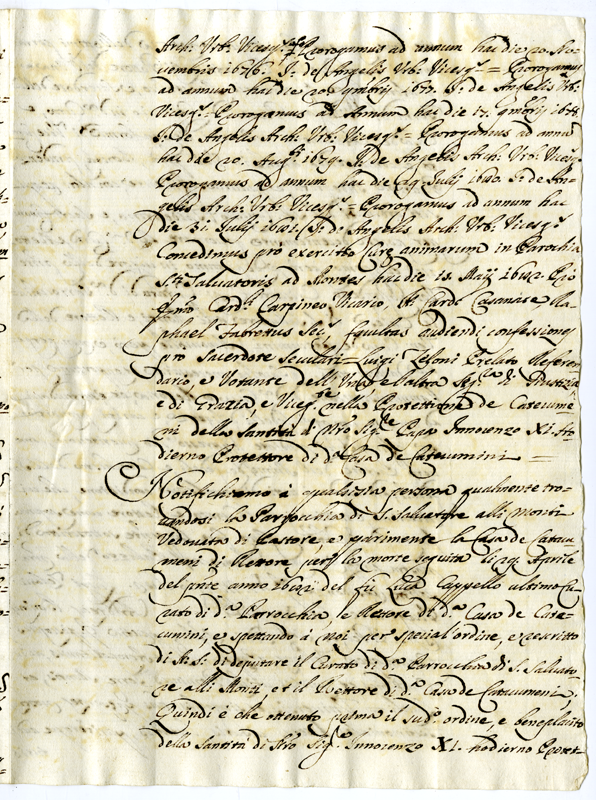 Arch: Urb: Vicesg.te Prorogamus ad annum hac die 20. No-
vembris 1676. J. de Angelis Urb: Vicesg.s = Prorogamus
ad annum hac die 20 9mbris 1677. J. de Angelis Urb:
Vicesg.s = Prorogamus ad Annum hac die 17. 9mbris 1678.
J. de Angelis Arch: Urb: Vicesg.s = Prorogamus ad annū
hac die 20. 1679. J. de Angelis Arch: Urb: Vicesg.s
Prorogamus ad annum hac die 29. Julij 1680. J. de An-
gelis Arch: Urb: Vicesg.s = Prorogamus ad annum hac
die 31 Julij 1681. J. de Angelis Arch: Urb: Vicesg.s
Concedimus pro exercitio Curę animarum in Parochia
S.ti Salvatoris ad Montes hac die 18. Maij 1682. Pro
Em̃o Card. Carpineo Vicario, Card. Casanate Ra-
phael Fabrettus Sec.s facultas audiendi confessiones
pro Sacerdote Seculari = Luigi Zesoni Prelato Referen-
dario, e Votante dell' Una, e l'altra Seg.ra di Giustizia
e di Grazia, e Viceg.te nella Protettione de Catecume
ni della Santità di Nr̃o Sig.re Papa Innocenzo XI. Ho-
dierno Protettore di d.a Casa de Catecumini =
Notifichiamo à qualsisia persona qualmente tro-
uandosi la Parrocchia di S. Salvatore alli Monti
Vedouata di Pastore e parimente la Casa de Catecu
meni di Rettore per la morte seguita li 29. Aprile
del pñte anno 1682 del fù Luca Cappello ultimo Cu-
rato di d.a Parrocchia, e Rettore di d.a Casa de Cate-
cumini, e spettando à noi per special' ordine, e rescritto
di di deputare il Curato di d.a Parrocchia di S. Salvato-
re alli Monti, et il Rettore di d.a Casa de Catecumeni,
Quindi è che ottenuto il sud.o ordine, e beneplacito
della Santità di Nr̃o Sig.re Innocenzo XI. hodierno Protet-